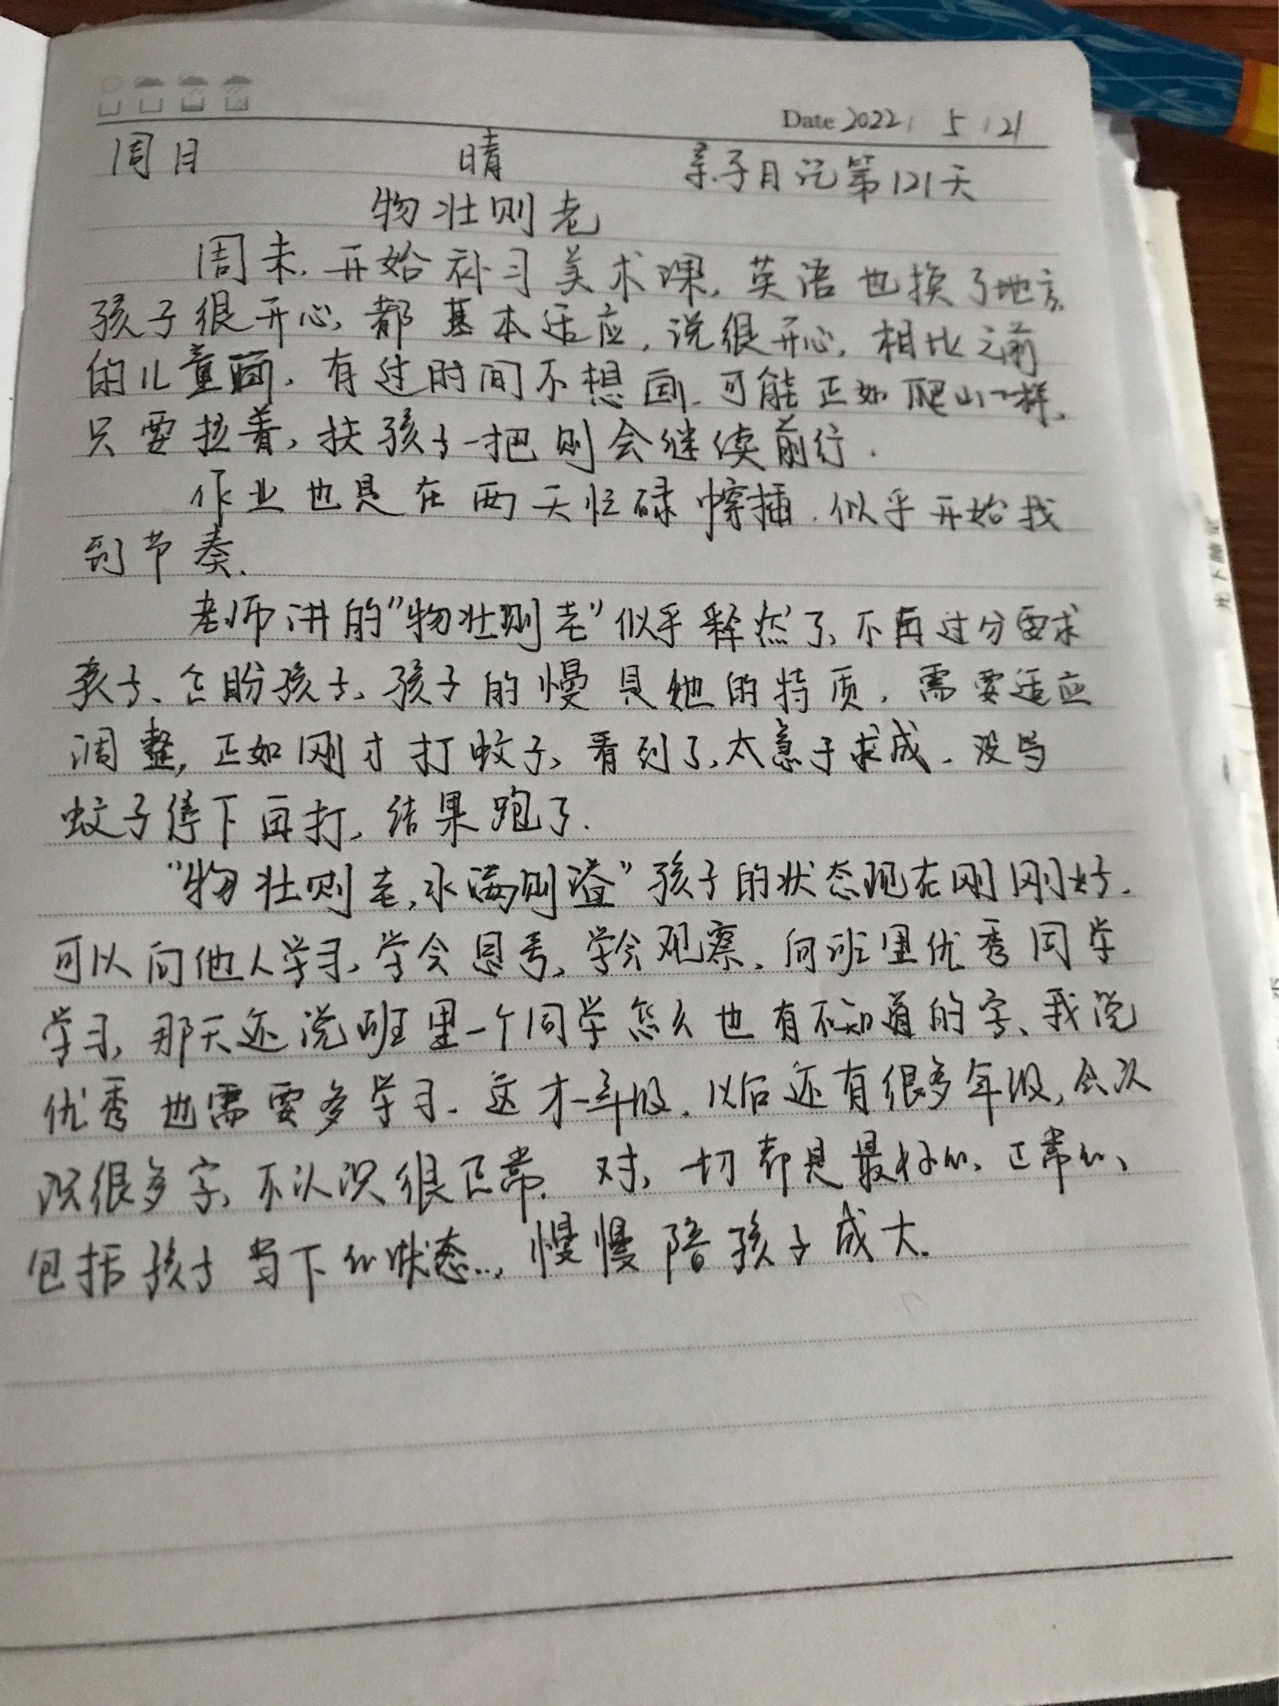 Date 2022 / 5 / 21
周日 晴 亲子日记第121天
物壮则老
周末,开始补习美术课,英语也换了地方,
孩子很开心,都基本适应,说很开心,相比之前
的儿童画,有过时间不想画,可能正如爬山一样,
只要拉着,扶孩子一把则会继续前行.
作业也是在两天忙碌中穿插,似乎开始找
到节奏.
老师讲的"物壮则老"似乎释然了,不再过分要求
孩子、企盼孩子,孩子的慢是她的特质,需要适应
调整,正如刚才打蚊子,看到了,太急于求成,没等
蚊子停下再打,结果跑了.
"物壮则老,水满则溢"孩子的状态现在刚刚好.
可以向他人学习,学会思考,学会观察,向班里优秀同学
学习,那天还说班里一个同学怎么也有不知道的字、我说
优秀也需要多学习.这才一年级,以后还有很多年级,会认
识很多字,不认识很正常.对,一切都是最好的、正常的、
包括孩子当下的状态..,慢慢陪孩子成大.